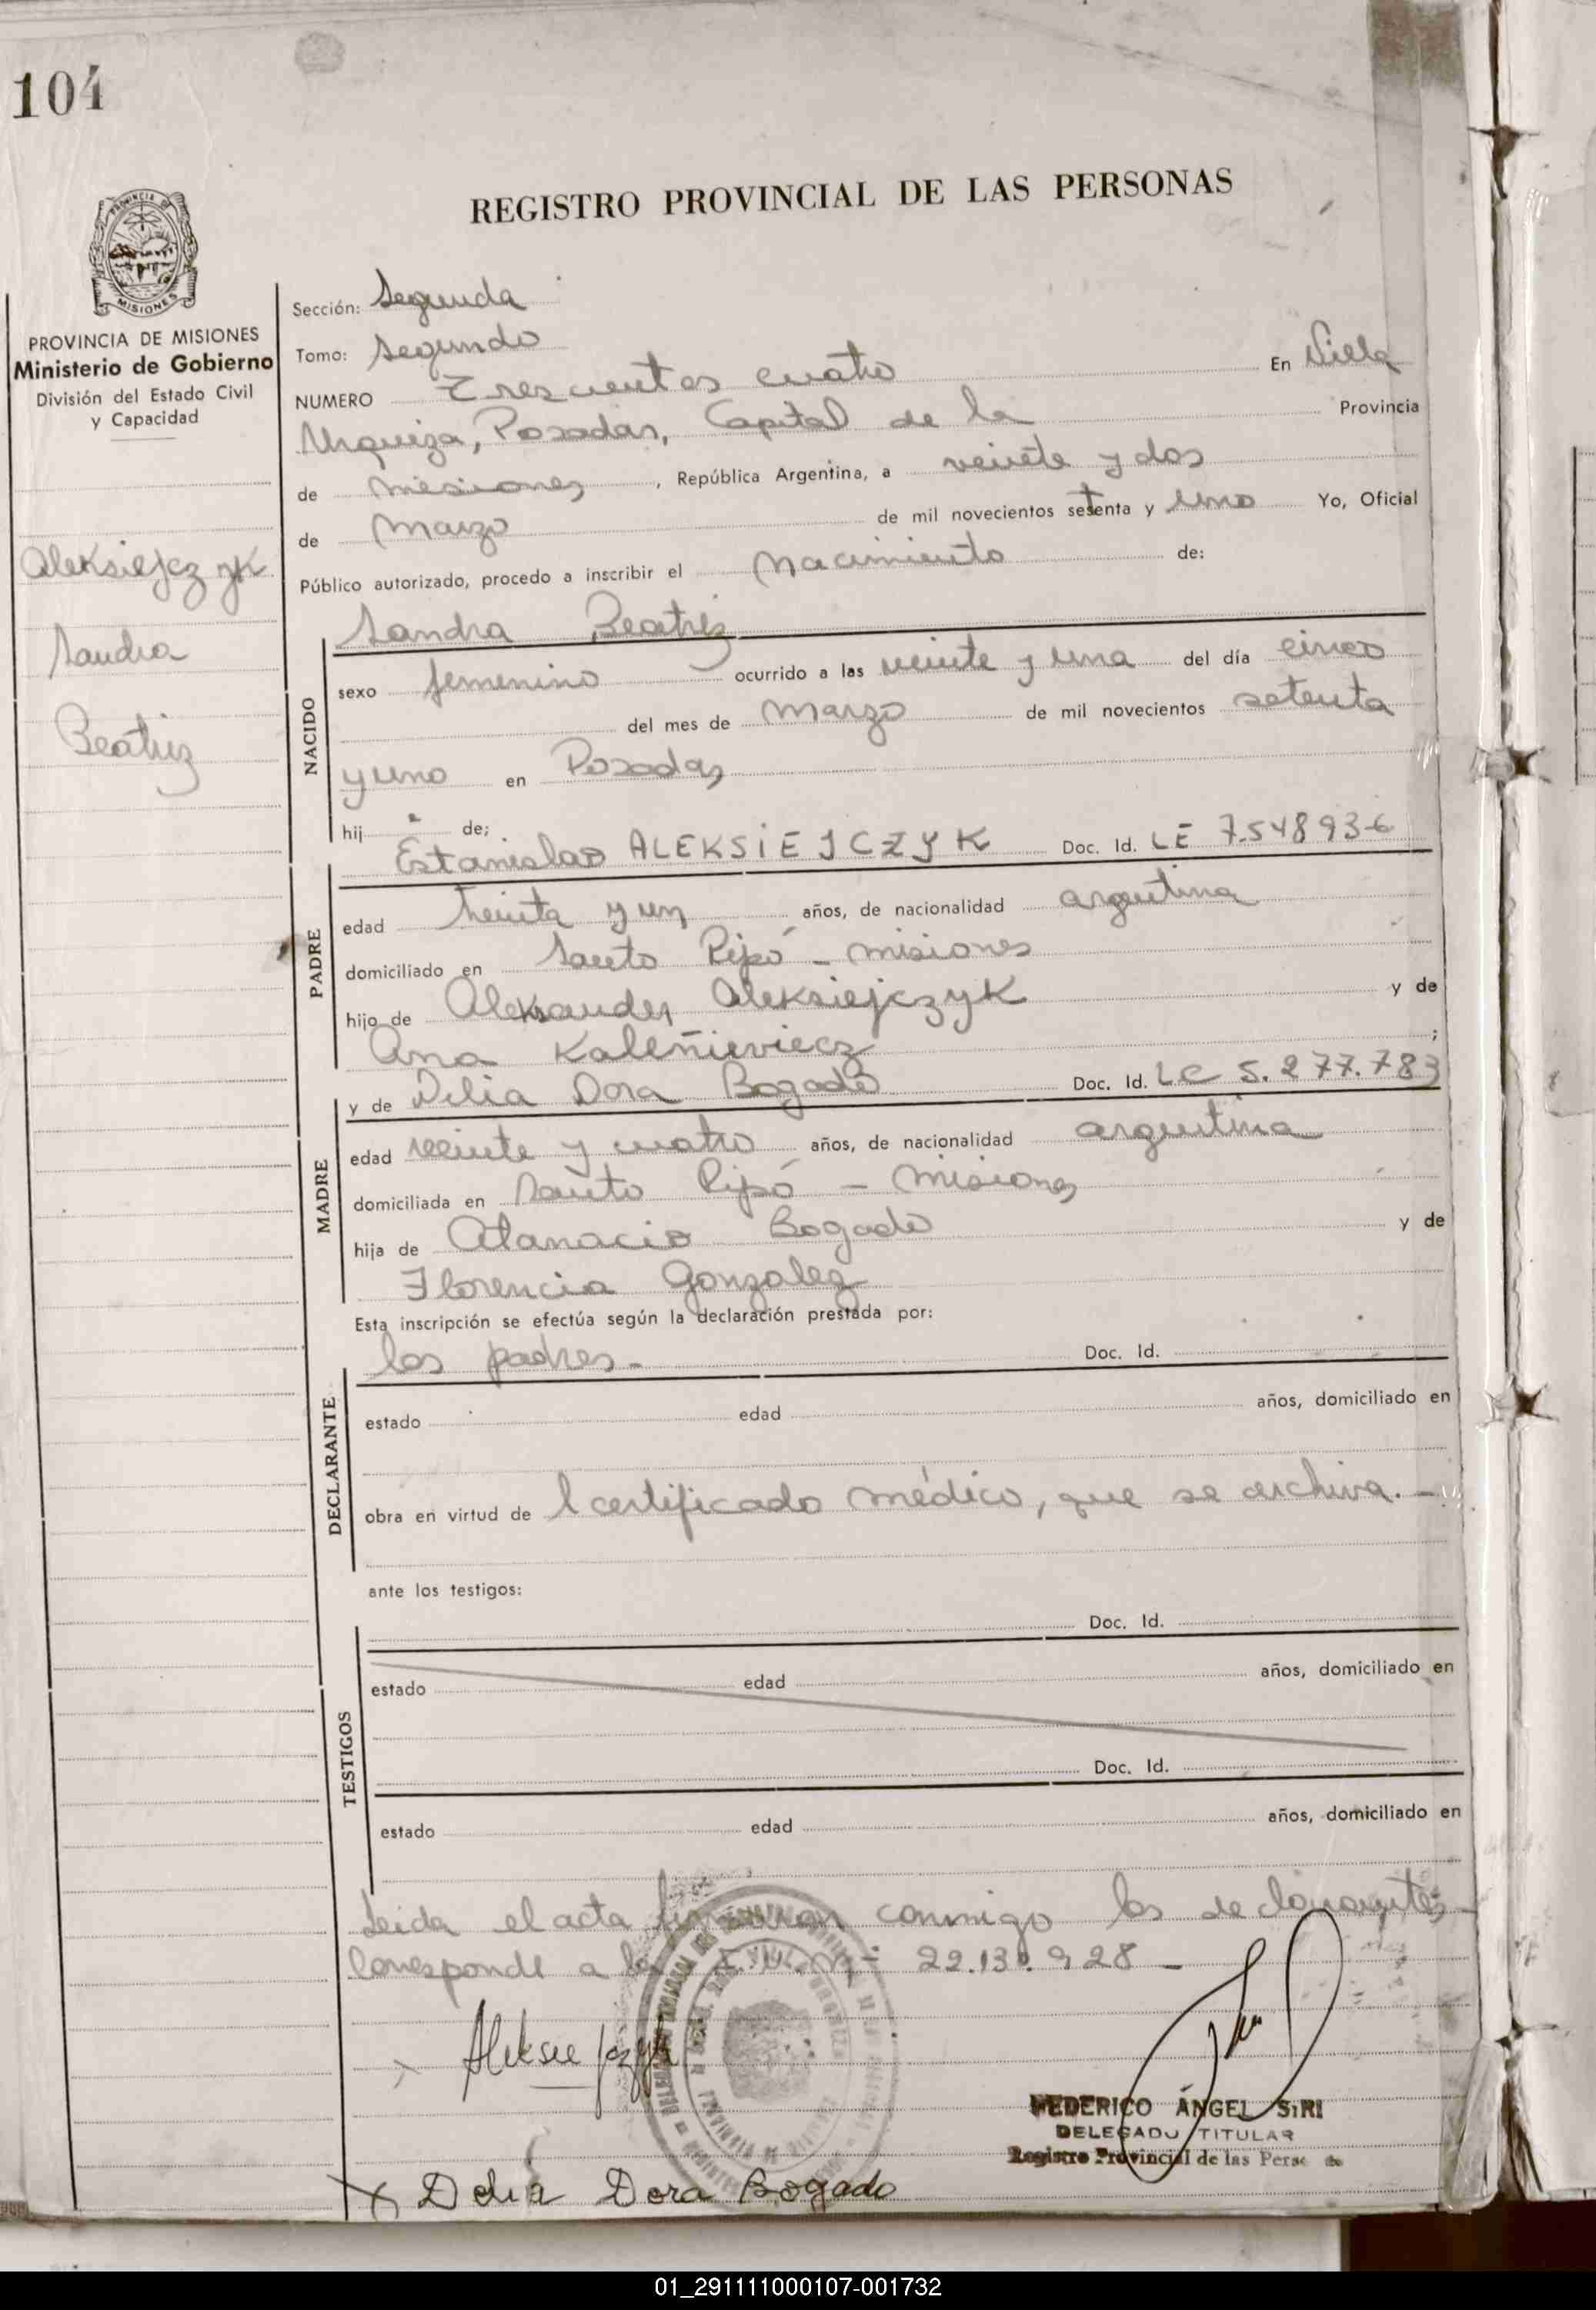 104
REGISTRO PROVINCIAL DE LAS PERSONAS
PROVINCIA DE MISIONES
Ministerio de Gobierno
División del Estado Civil
y Capacidad
Aleksiejczyk
Sandra
Beatriz
Sección: Segunda
Tomo: Segundo
NUMERO Trescientos cuatro En Villa
Urquiza, Posadas, Capital de la Provincia
de Misiones, República Argentina, a veinte y dos
de Marzo de mil novecientos setenta y uno Yo, Oficial
Público autorizado, procedo a inscribir el Nacimiento de:
Sandra Beatriz
NACIDO
sexo femenino ocurrido a las veinte y una del día cinco
del mes de Marzo de mil novecientos setenta
y uno en Posadas
hij a de;
Estanislao ALEKSIEJCZYK Doc. Id. LE 7.548936
PADRE
edad treinta y un años, de nacionalidad argentina
domiciliado en Santo Pipó - Misiones
hijo de Aleksander Aleksiejczyk y de
Ana Kaleñieviecz ;
y de Delia Dora Bogado Doc. Id. LC 5.277.783
MADRE
edad veinte y cuatro años, de nacionalidad argentina
domiciliada en Santo Pipó - Misiones
hija de Atanacio Bogado y de
Florencia Gonzalez
Esta inscripción se efectúa según la declaración prestada por:
los padres.- Doc. Id.
DECLARANTE
estado edad años, domiciliado en
obra en virtud de l certificado médico, que se archiva.-
ante los testigos:
Doc. Id.
TESTIGOS
estado edad años, domiciliado en
Doc. Id.
estado edad años, domiciliado en
Leida el acta firmaron conmigo los declarantes
Corresponde a la 22.130.928 -
Aleksiejczyk
FEDERICO ÁNGEL SIRI
DELEGADO TITULAR
Registro Provincial de las Perso
x Delia Dora Bogado
01_291111000107-001732